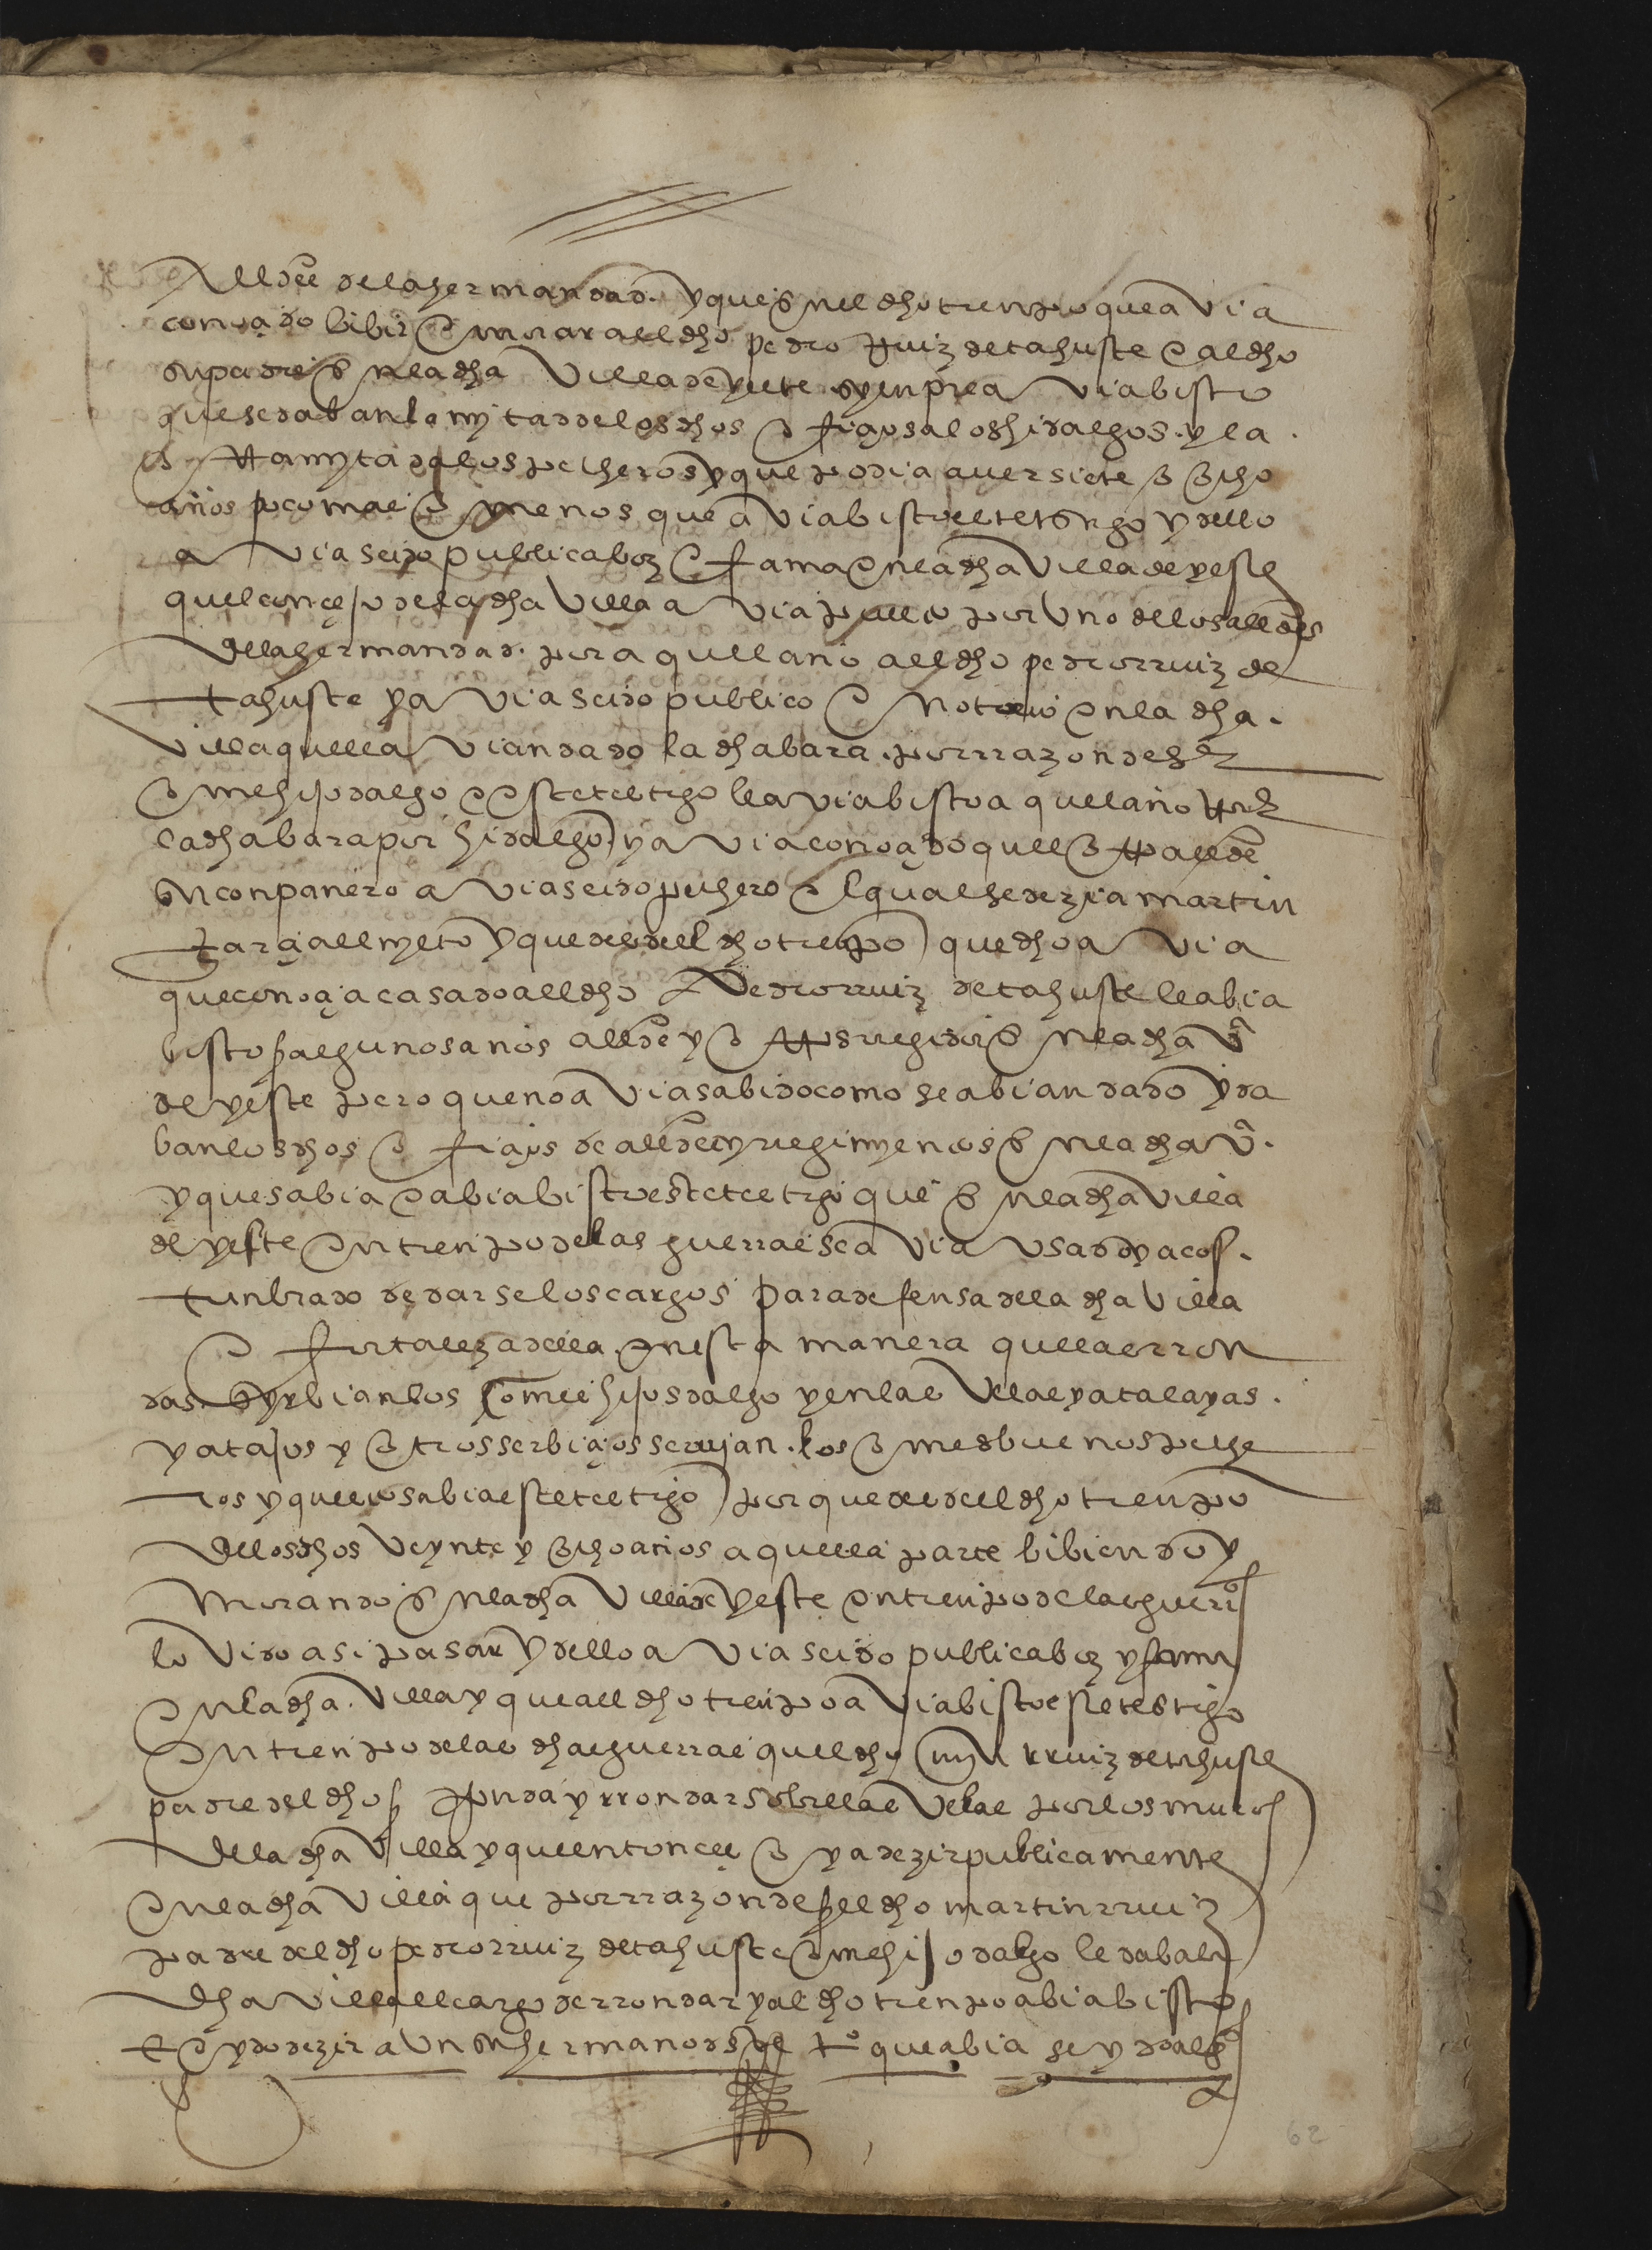 allde de la hermandad. y que en el dho tienpo que avia
conoçido bibir e morar all dho pedro Ruiz de tahuste e al dho
su padre en la dha Villa de yeste syenpre a via bisto
que se daban la mytad de los dhos ofiçios a los hidalgos. y la
otra mytad a los pecheros y que podia aver siete o ocho
años poco mas o menos que a via bisto el testigo y dello
a via seido publica boz e fama en la dha Villa de yeste
quel conçejo de la dha Villa a via puesto por Uno de los alldes
de la hermandad. por aquel año all dho pedro rruiz de
tahuste y a via seido publico e notorio en la dha.
Villa que lle a vian dado la dha bara. por rrazon de ser
ome hijodalgo e este testigo le a via bisto aquel año traer
la dha bara por hidalgo y a via conoçido quel otro allde
su conpanero a via seido pechero el qual se dezia martin
garçia all myeto y que desde el dho tienpo que dho a via
que conoçia casado all dho Pedro rruiz de tahuste le abia
bisto algunos anos allde y otros regidor en la dha Va
de yeste pero que no a via sabido como se abian dado y da
ban los dhos ofiçios de alldes y regimyentos en la dha Va.
y que sabia e abia bisto este testigo que en la dha Villa
de yeste en tienpo de las guerras se a via Usado y acos.
tunbrado de darse los cargos para defensa de la dha Villa
e fortaleza della. en esta manera que llas rron
das serbian los omes hijosdalgo y en las Velas y atalayas.
y atajos y otros serbiçios serujan. los omes buenos peche
ros y que esto sabia este testigo porque desde el dho tienpo
de los dhos Veynte y ocho anos a quella parte bibiendo y
morando en la dha Villa de Yeste en tienpo de las guerras
lo Vido asi pasar y dello a via seido publica boz y fama
en la dha. Villa y que all dho tienpo a via bisto este testigo
en tienpo de las dhas guerras quel dho myn rruiz de tahuste
padre del dho Ronda y rrondar sobre llas Velas por los muros
de la dha Villa y que entonçes oya dezir publicamente
en la dha Villa que por rrazon de ser el dho martin rruiz
padre del dho pedro rruiz de tahuste ome hijodalgo le daba la
dha Villa el cargo de rrondar y al dho tienpo abia bisto
e oydo dezir a Un su hermano deste to que abia seydo alldes
62